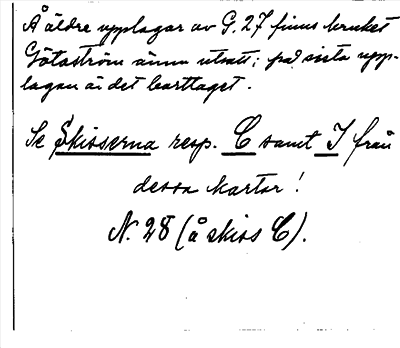 Å äldre upplagor av G. 27 finns bruket
Götaström ännu utsatt; på sista upp-
lagan är det borttaget.
Se Skisserna resp. C samt I från
dessa kartor!
N. 28 (å skiss C).